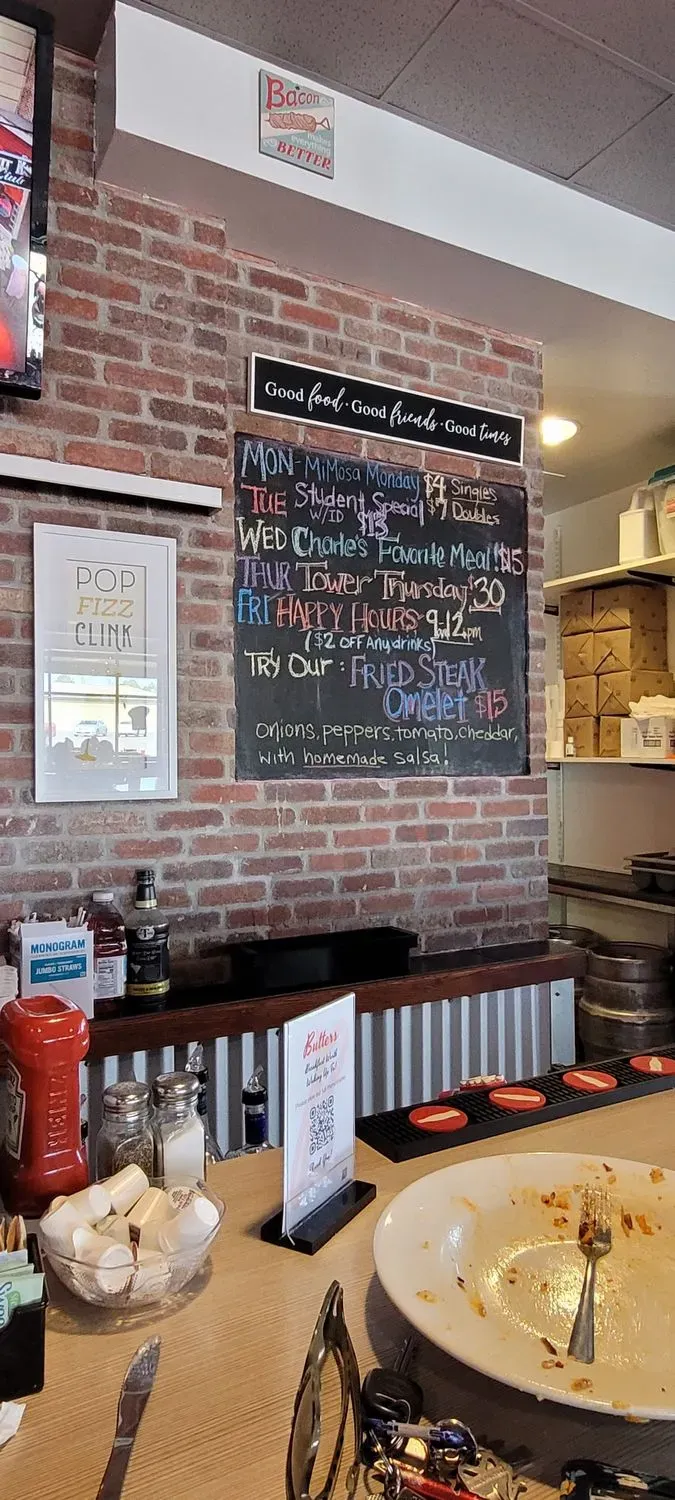 Bacon
makes
everything
BETTER
Good food · Good friends · Good times
MON - MiMosa Monday $4 Singles
$7 Doubles
TUE Student Special
W/ID $13
WED Charle's Favorite Meal! $15
THUR Tower Thursday $30
FRI HAPPY HOURS 9-12pm
($2 OFF Any drinks)
TRY Our: FRIED STEAK
Omelet $15
onions, peppers, tomato, cheddar,
with homemade salsa!
POP
FIZZ
CLINK
MONOGRAM
JUMBO STRAWS
Butters
Breakfast Worth
Waking Up For!
Thank You!